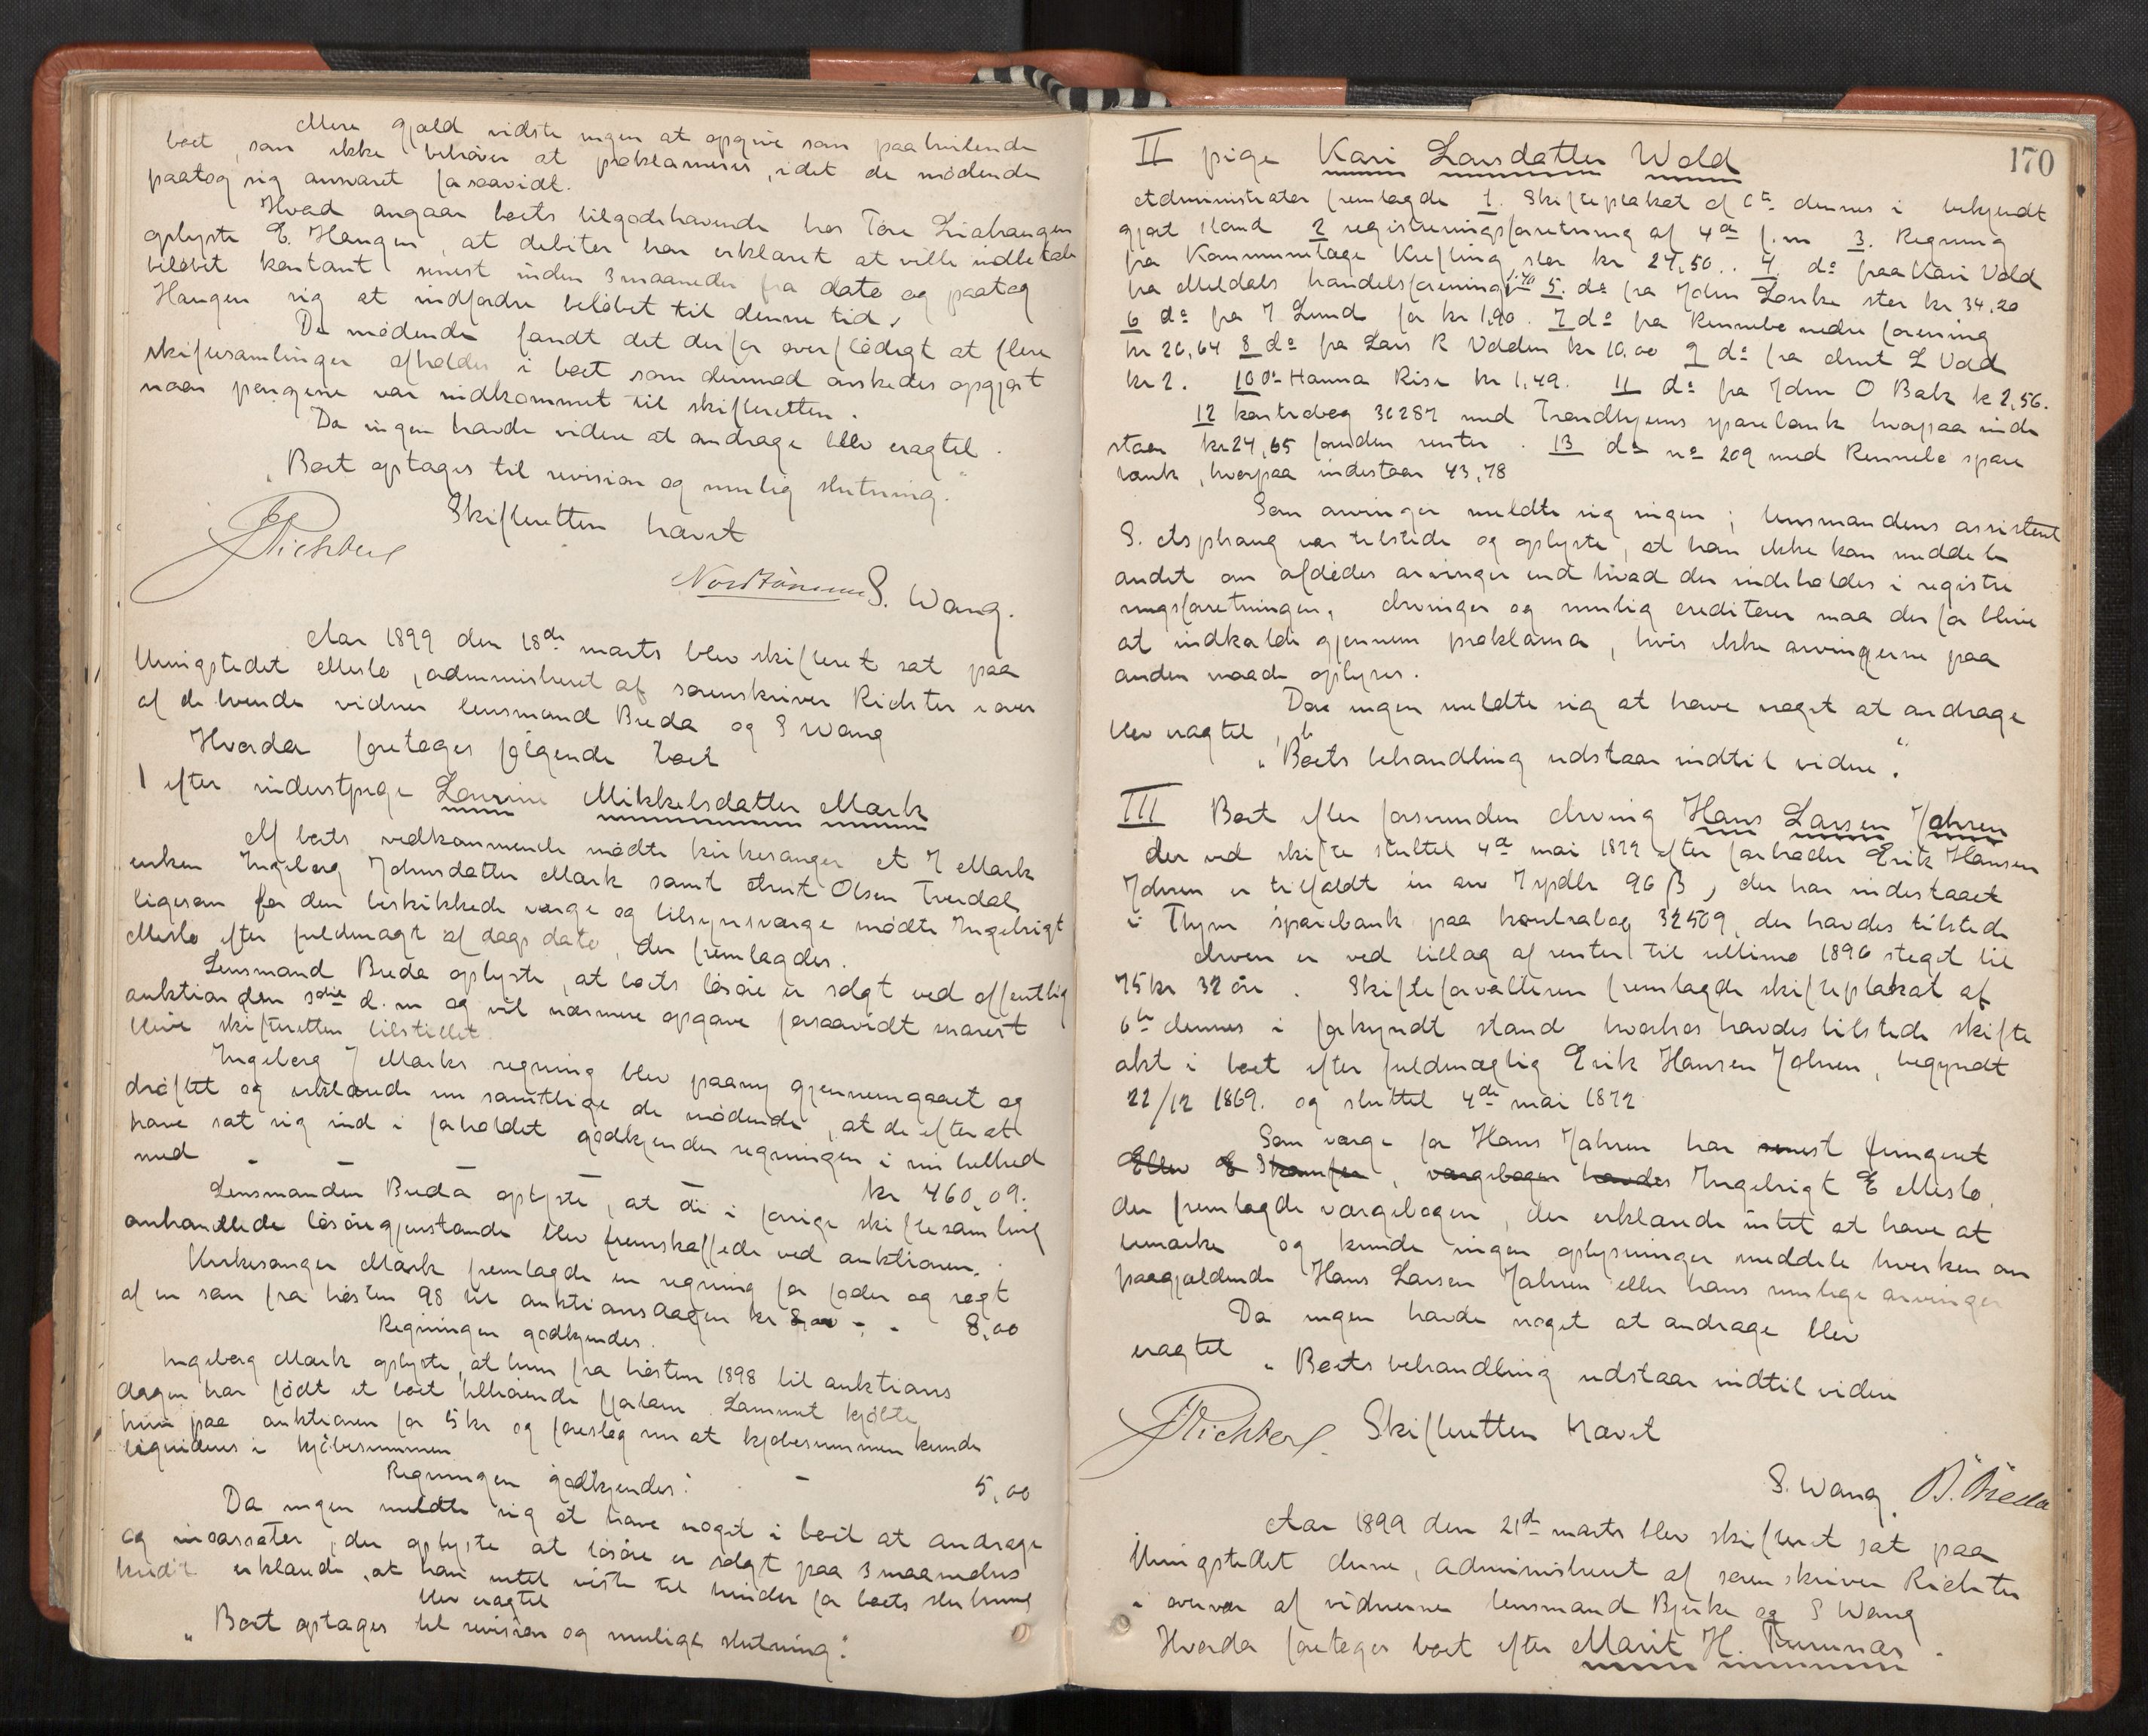 Mere gjæld vidste ingen at opgive som paahvilende
boet, som ikke behøver at proklameres, idet de mødende
paatog sig ansvaret forsaavidt.
Hvad angaar boets tilgodehavende hos Tore Liahaugen
oplyste E. Haugen, at debitor har erklæret at ville indbetale
beløbet kontant senest inden 3 maaneder fra dato og paatog
Haugen sig at indfordre beløbet til denne tid.
De mødende fandt det derfor overflødigt at flere
skiftesamlinger afholdes i boet som dermed ønskedes opgjort
naar pengene var indkommet til skifteretten.
Da ingen havde videre at andrage blev eragtet.
„Boet optages til revision og mulig slutning.“
Skifteretten hævet
Richter
S. Wang.
Aar 1899 den 18de marts blev skifteret sat paa
thingstedet Meslo, administreret af sorenskriver Richter i over
af de tvende vidner lensmand Breda og S Wang
Hvorda foretoges følgende boer
I efter inderstpige Laurine Mikkelsdatter Mærk
Af boets vedkommende mødte kirkesanger A J Mærk
enken Ingeborg Johnsdatter Mærk samt Arnt Olsen Tverdal
ligesom for den beskikkede værge og tilsynsværge mødte Ingebrigt
Meslo efter fuldmagt af dags dato, der fremlagdes.
Lensmand Breda oplyste, at boets løsøre er solgt ved offentlig
auktion den d. m og vil nærmere opgave forsaavidt snarest
blive skifteretten tilstillet.
Ingeborg J Mærks regning blev paany gjennemgaaet og
drøftet og erklærede nu samtlige de mødende, at de efter at
have sat sig ind i forholdet godkjender regningen i sin helhed
med - - - kr 460,09.
Lensmanden Breda oplyste, at de i forrige skiftesamling
omhandlede løsøregjenstande blev fremskaffede ved auktionen.
Kirkesanger Mærk fremlagde en regning for foder og røgt
af en sau fra høsten 98 til auktionsdagen kr 8,00 - - 8,00
Regningen godkjendes.
Ingeborg Mærk oplyste, at hun fra høsten 1898 til auktions
dagen har født et boet tilhørende fjorlam. Lammet kjøbte
hun paa auktionen for 5 kr og foreslog nu at kjøbesummen kunde
liquideres i kjøbesummen
Regningen godkjendes. - 5,00
Da ingen meldte sig at have noget i boet at andrage
og incassator, der oplyste at løsøre er solgt paa 3 maaneders
kredit erklærede, at han intet viste til hinder for boets slutning
blev eragtet
„Boet optages til revision og muligt slutning.“
170
II pige Kari Larsdatter Wold
Administrator fremlagde 1. Skifteplakat af 6te dennes i bekjendt
gjort stand 2 registreringsforretning af 4de f.m 3. Regning
fra Kommunelæge Krefting stor kr 24,50.. 4. do paa Kari Vold
fra Meldals handelsforening 5. do fra John Lønke stor kr 34,20
6 do fra J Lund for kr 1,90. 7 do fra Rennebo nedre forening
kr 20,64 8 do fra Lars R Volden kr 10,00 9 do fra Arnt L Vold
kr 2. 10 do Hanna Rise kr 1,49. 11 do fra John O Bak kr 2,56.
12 kontrabog 36287 med Trondhjems sparebank hvorpaa inde
staar kr 24,65 foruden renter. 13 do no 209 med Rennebo spare
bank, hvorpaa indestaar 43,78
Som arvinger meldte sig ingen; lensmandens assistent
S. Asphaug var tilstede og oplyste, at han ikke kan meddele
andet om afdødes arvinger end hvad der indeholdes i registre
ringsforretningen. Arvinger og mulig creditorer maa derfor blive
at indkalde gjennem proklama, hvis ikke arvingerne paa
anden maade oplyses.
Da ingen meldte sig at have noget at andrage
blev eragtet
„Boets behandling udstaar indtil videre.“
III Boet efter forsvunden arving Hans Larsen Jahren
der ved skifte sluttet 4de mai 1872 efter farbroder Erik Hansen
Jahren er tilfaldt en arv 7 spdlr 96 ß, der har indestaaet
i Thjem sparebank paa kontrabog 32509, der havdes tilstede
Arven er ved tillæg af renter til ultimo 1896 steget til
75 kr 32 øre. Skifteforvalteren fremlagde skifteplakat af
6te dennes i forkyndt stand hvorhos havdes tilstede skifte
akt i boet efter fuldmægtig Erik Hansen Jahren, begyndt
22/12 1869. og sluttet 4de mai 1872
Som værge for Hans Jahren har senest fungeret
Ingebrigt E Meslo,
der fremlagde værgebogen, der erklærede intet at have at
bemærke og kunde ingen oplysninger meddele hverken om
paagjældende Hans Larsen Jahren eller hans mulige arvinger
Da ingen havde noget at andrage blev
eragtet „Boets behandling udstaar indtil videre
Richter. Skifteretten hævet
S. Wang. B. Breda
Aar 1899 den 21de marts blev skifteret sat paa
thingstedet Aune, administreret af sorenskriver Richter
i overvær af vidnerne lensmand Bjerke og S Wang
Hvorda foretoges boet efter Marit H.